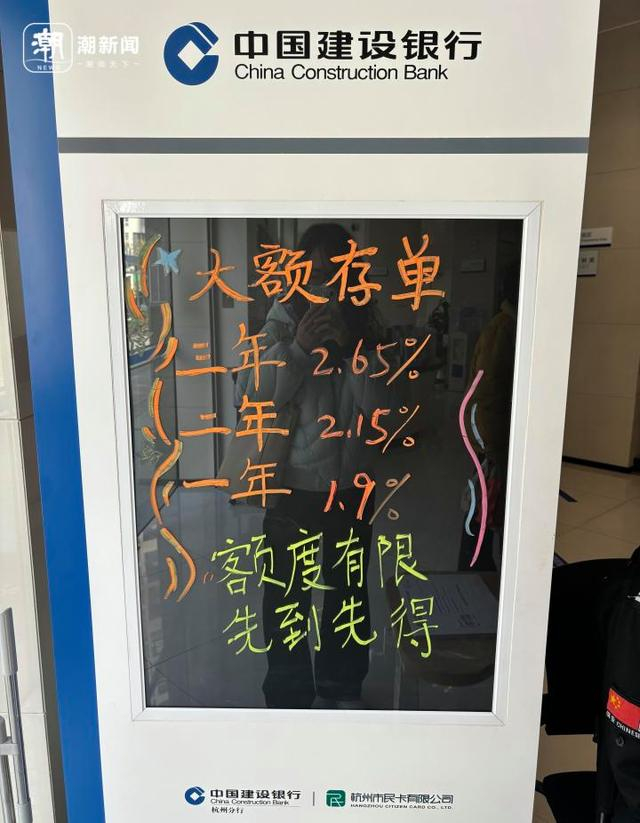 潮 潮新闻
NEWS
中国建设银行
China Construction Bank
大额存单
三年 2.65%
二年 2.15%
一年 1.9%
额度有限
先到先得
中国建设银行
China Construction Bank
杭州分行
杭州市民卡有限公司
HANGZHOU CITIZEN CARD CO., LTD.